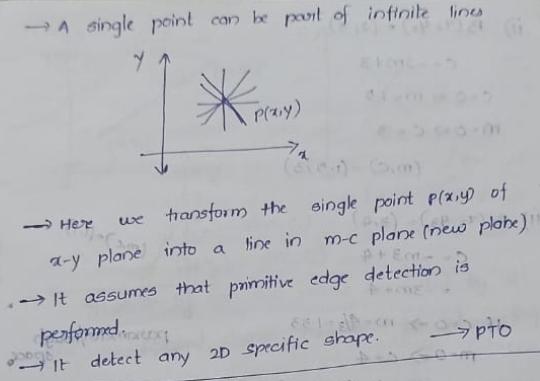 → A single point can be part of infinite lines
y
P(x,y)
x
→ Here we transform the single point P(x,y) of
x-y plane into a line in m-c plane (new plane)
→ It assumes that primitive edge detection is
performed.
→ It detect any 2D specific shape. → PTO